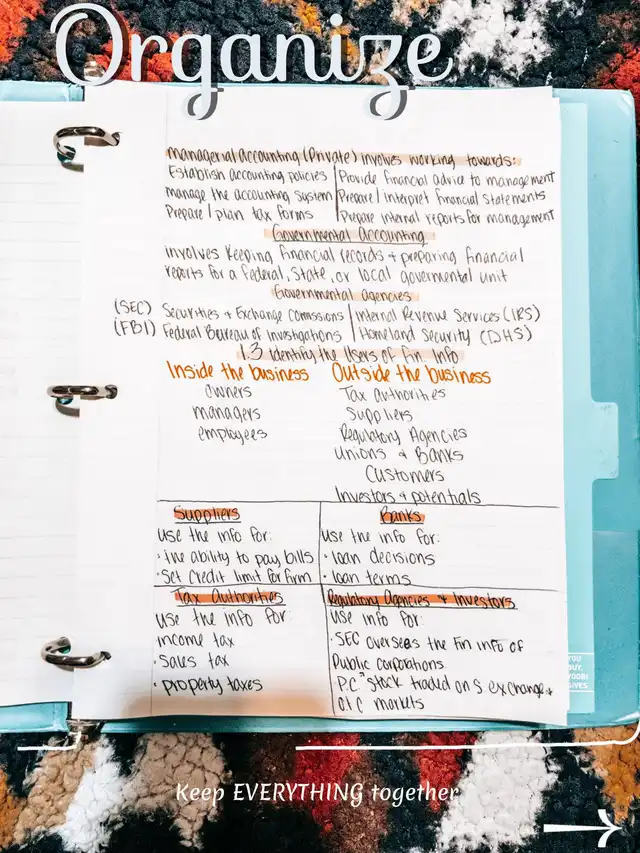 Organize
Managerial accounting (Private) involves working towards:
Establish accounting policies | Provide financial advice to management
manage the accounting system | Prepare/interpret financial statements
Prepare/plan tax forms | Prepare internal reports for management
Governmental Accounting
involves keeping financial records + preparing financial
reports for a federal, state, or local govermental unit
Governmental agencies
(SEC) Securities + Exchange Comissions | Internal Revenue Services (IRS)
(FBI) Federal Bureau of Investigations | Homeland Security (DHS)
1.3 Identify the Users of Fin Info
Inside the business
owners
managers
employees
Outside the business
Tax authorities
Suppliers
Regulatory Agencies
Unions & Banks
Customers
Investors + potentials
Suppliers
use the info for:
· the ability to pay bills
· Set credit limit for firm
Banks
use the info for:
· loan decisions
· loan terms
Tax authorities
use the info for:
income tax
· Sales tax
· property taxes
Regulatory Agencies + Investors
use info for:
· SEC oversees the fin info of
Public corporations
P.C = stock traded on S. exchange +
OTC markets
YOU
BUY,
YOOBI
GIVES
Keep EVERYTHING together